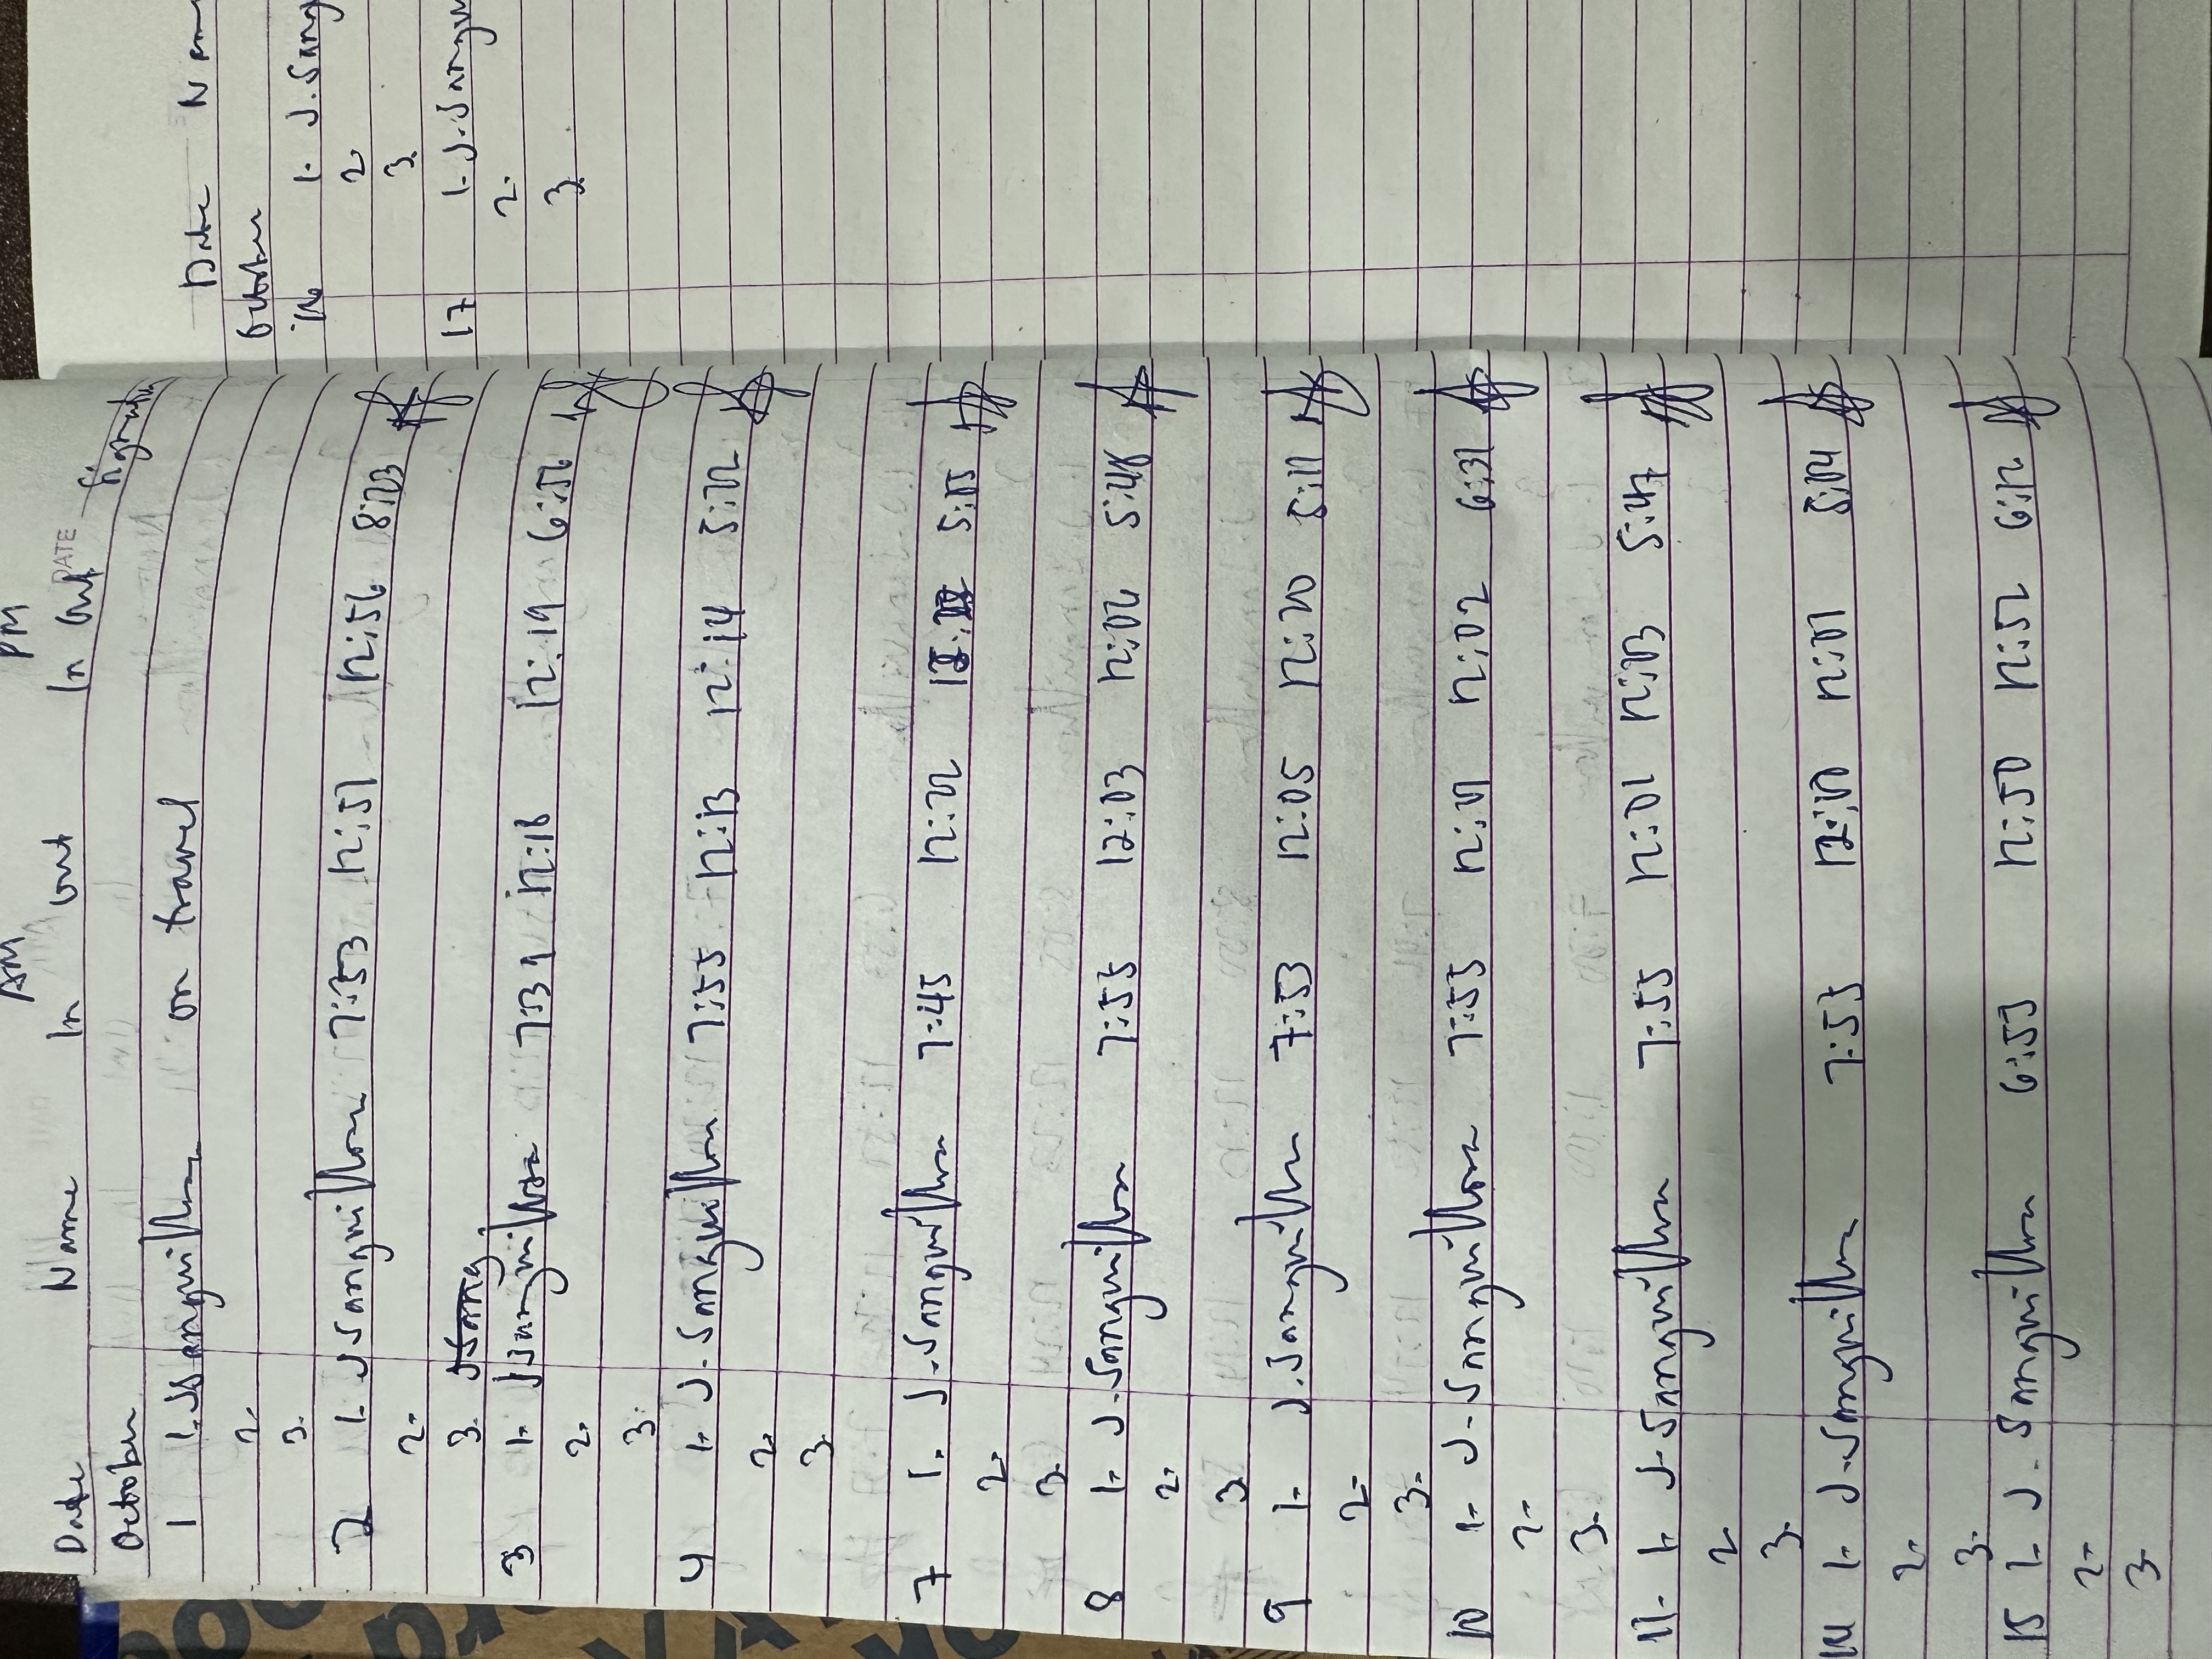 AM PM
DATE
Date Name In Out In Out Signature
October
1 1. JSanguillosa on travel
2.
3.
2 1. JSanguillosa 7:53 12:51 12:56 8:03
2.
3. JSang
3 1. JSanguillosa 7:31 12:18 12:19 6:56
2.
3.
4 1. J. Sanguillosa 7:55 12:13 12:14 5:22
2.
3.
7 1. J. Sanguillosa 7:45 12:22 5:05
2.
3.
8 1. J. Sanguillosa 7:55 12:03 12:02 5:48
2.
3.
9 1. J. Sanguillosa 7:53 12:05 12:20 5:11
2.
3.
10 1. J. Sanguillosa 7:55 12:01 12:02 6:31
2.
3.
11. 1. J. Sanguillosa 7:55 12:01 12:03 5:47
2.
3.
14 1. J. Sanguillosa 7:55 12:00 12:01 5:04
2.
3.
15 1. J. Sanguillosa 6:53 12:50 12:52 6:12
2.
3.
Date Nam
October
16 1. J. Sang
2.
3.
17 1. J. Sangui
2.
3.